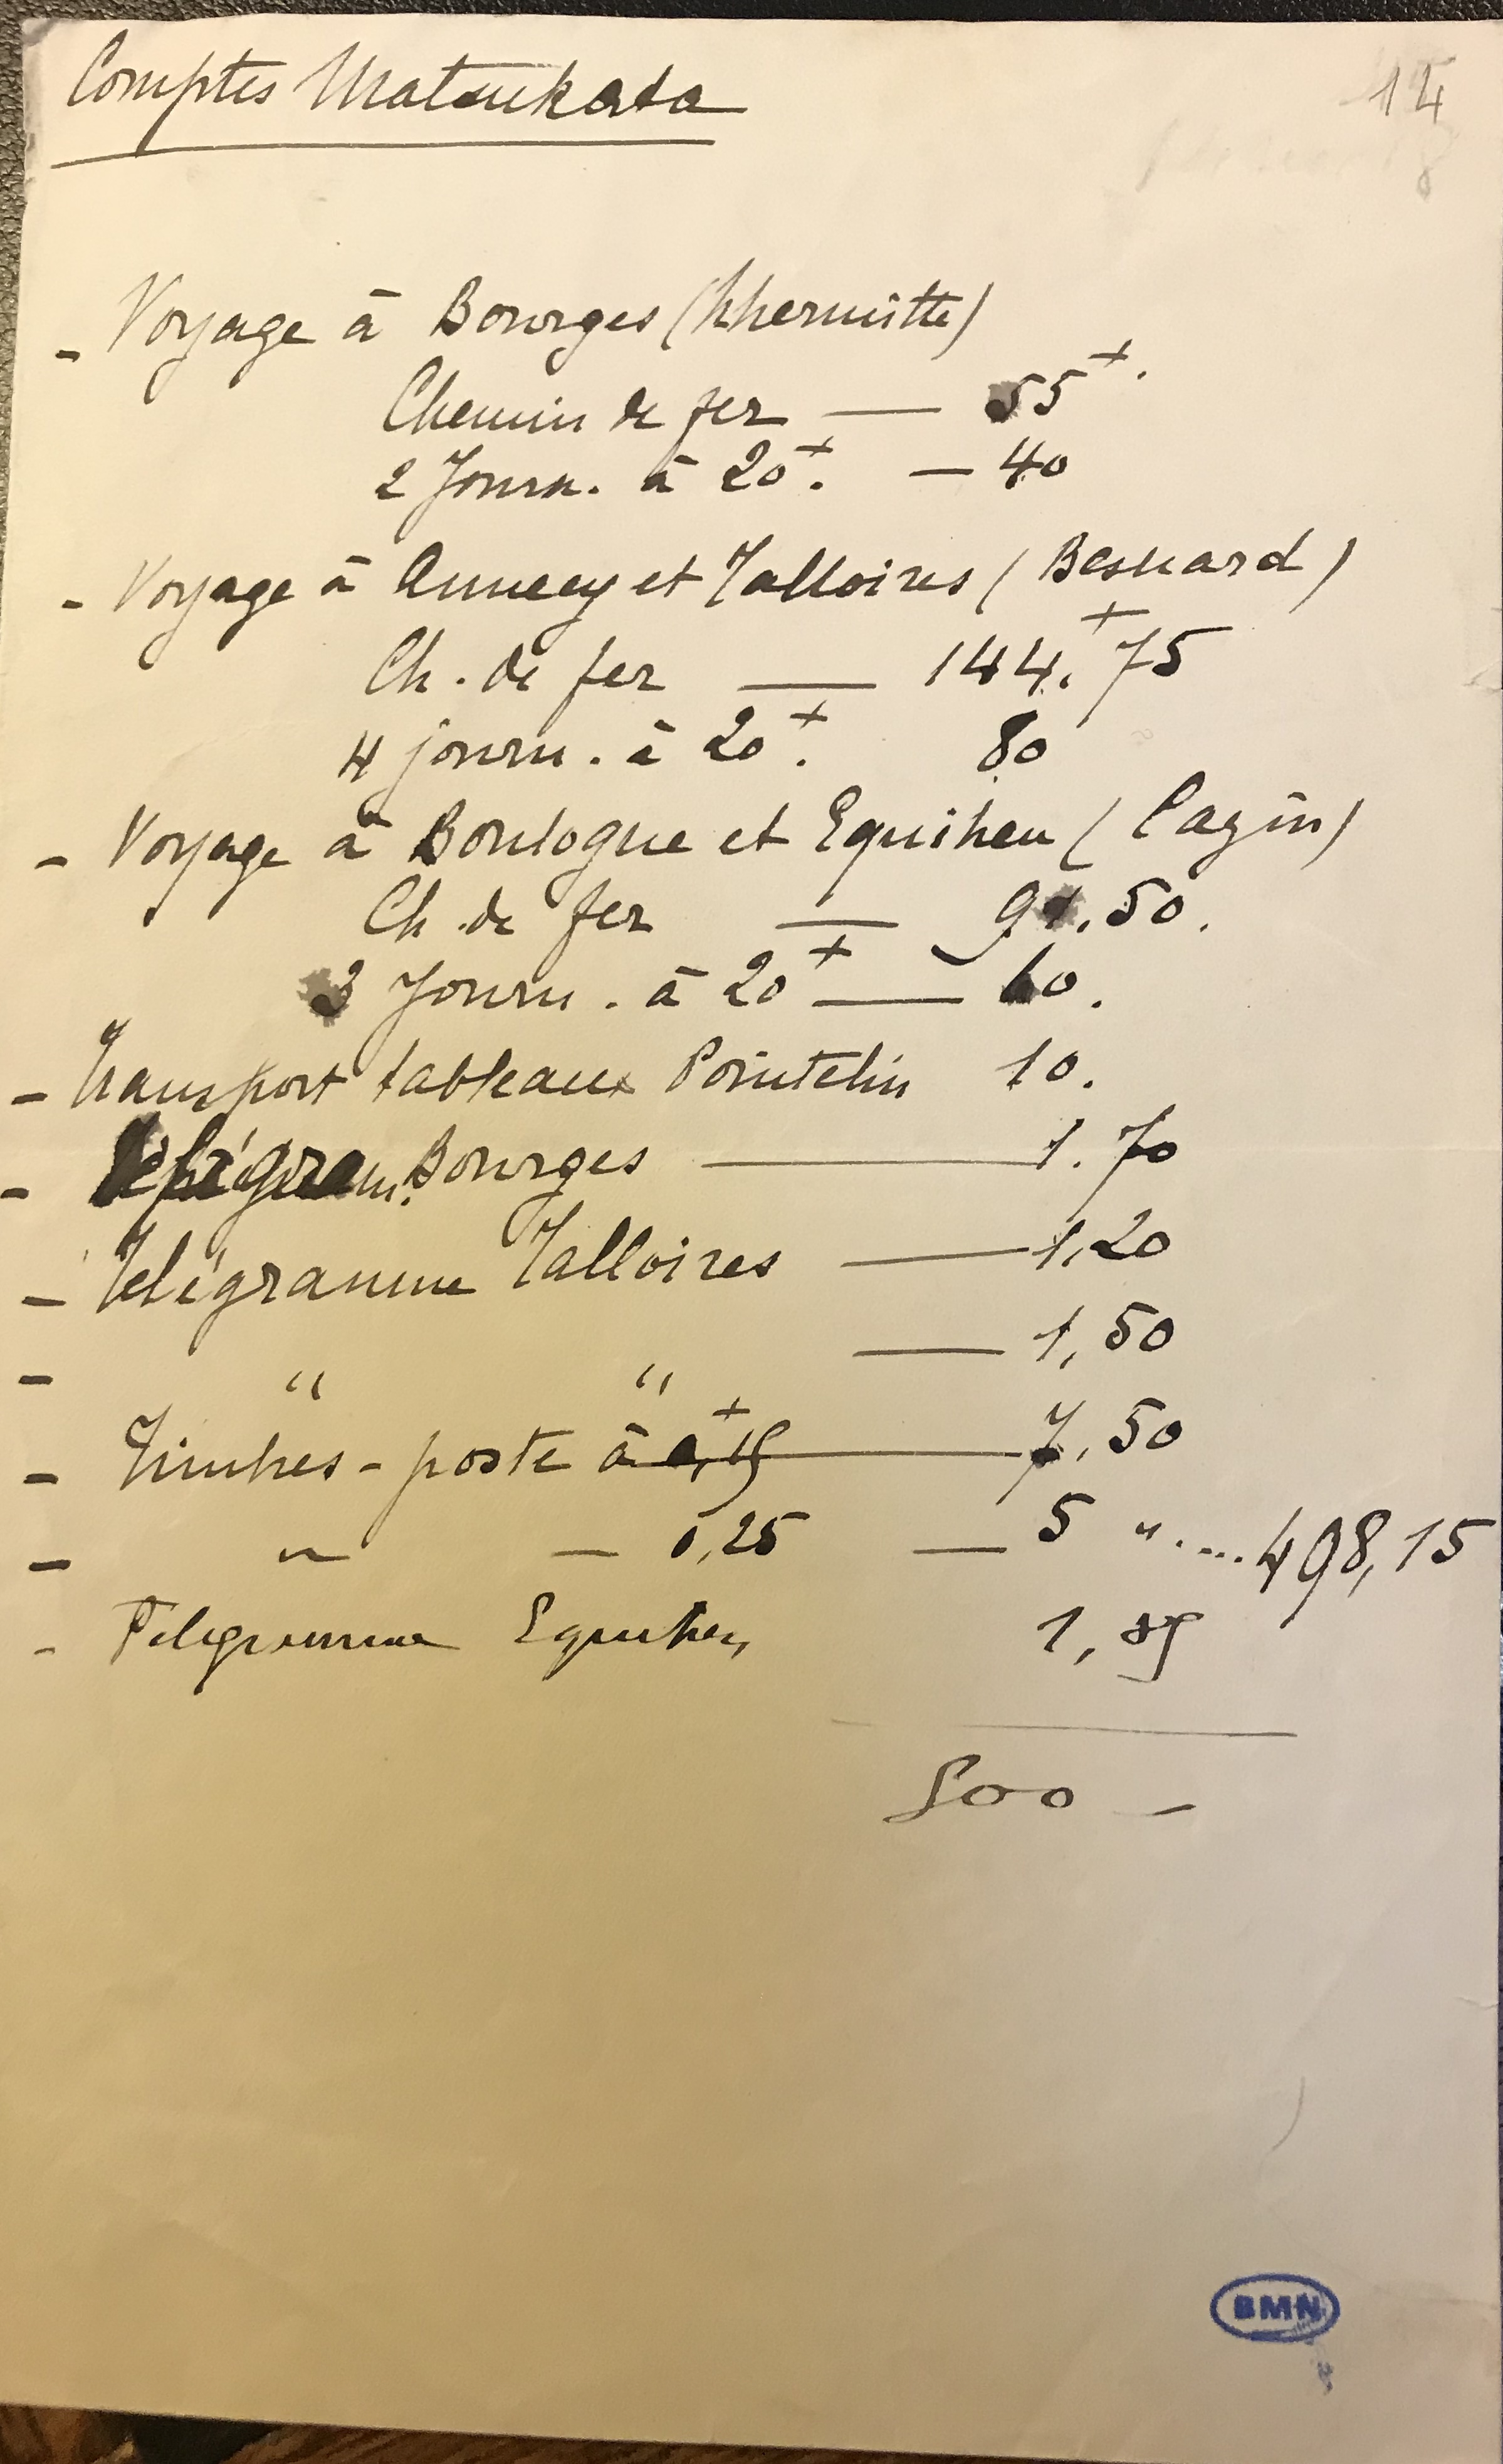 Comptes Matsukata
14
- Voyage à Bourges (Lhermitte)
Chemin de fer — 55f.
2 Journ. à 20f. — 40
- Voyage à Annecy et Talloires (Besnard)
Ch. de fer — 144,f75
4 journ. à 20f. 80
- Voyage à Boulogne et Equihen (Cazin)
Ch. de fer — 91.50.
3 Journ. à 20f — 60.
- Transport tableaux Pointelin 10.
- Télégram. Bourges — 1.70
- Télégramme Talloires — 1,20
- " " — 1,50
- Timbres-poste à 0,f15 — 7,50
- " — 0,25 — 5 " .... 498,15
- Telegramme Equihen 1,85
500 –
BMN